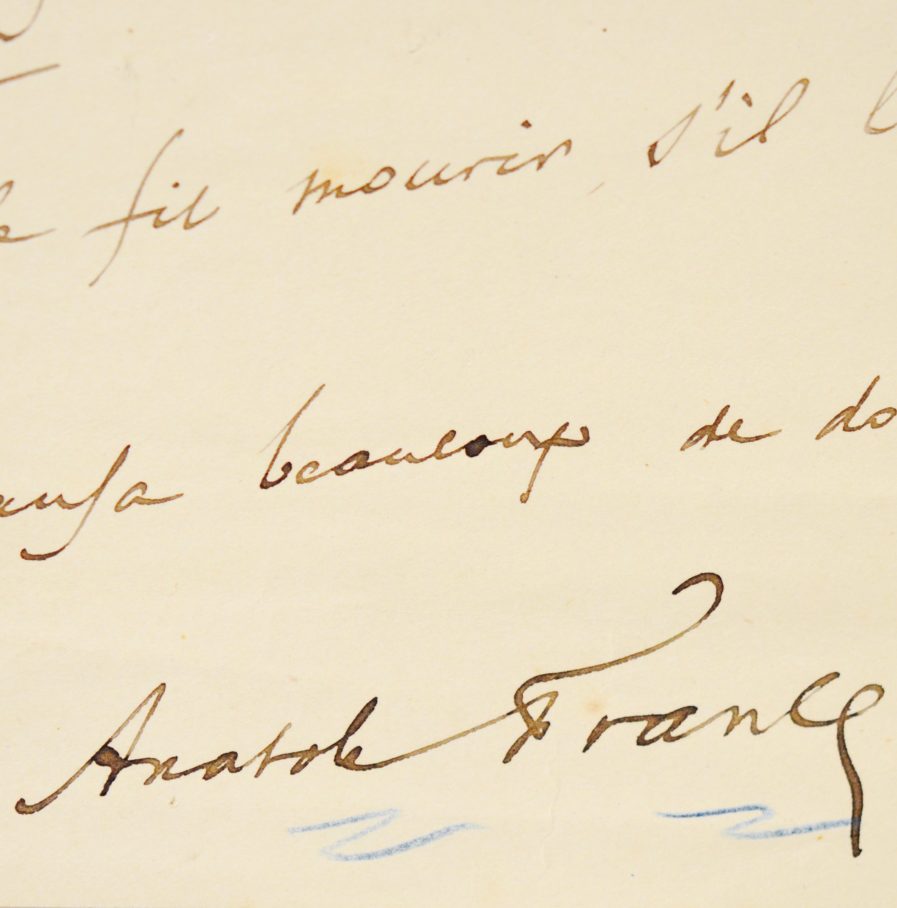 fit mourir, s'il
beaucoup de do
Anatole France